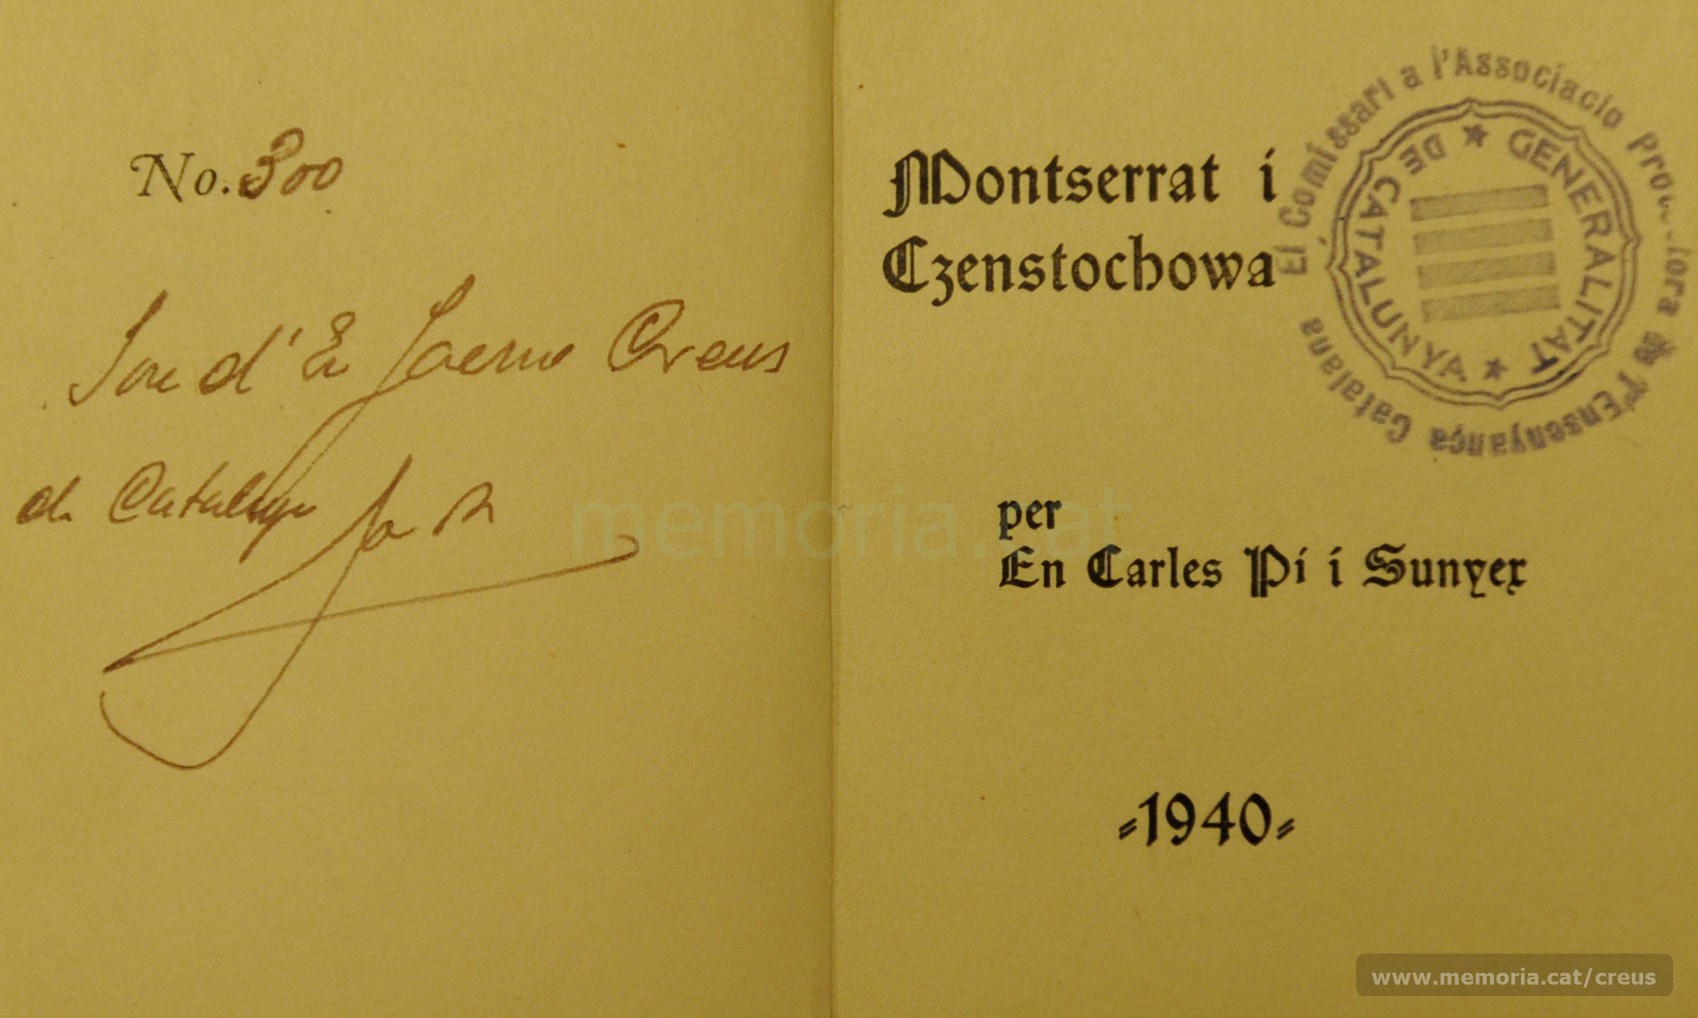 No. 300
Soc d'En Jaume Creus
de Catalunya
Montserrat i
Czenstochowa
per
En Carles Pi i Sunyer
-1940-
El Comissari a l'Associacio Protectora de l'Ensenyança Catalana
GENERALITAT DE CATALUNYA
memoria.cat
www.memoria.cat/creus